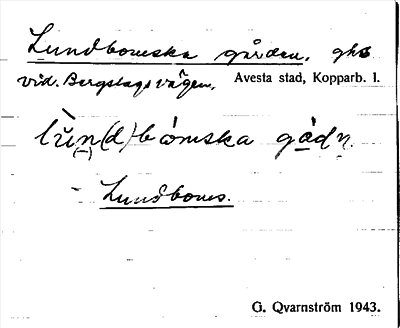 Lundbomska gården. ghs
vid. Bergslagsvägen. Avesta stad, Kopparb. l.
gådn.
– Lundboms.
G. Qvarnström 1943.